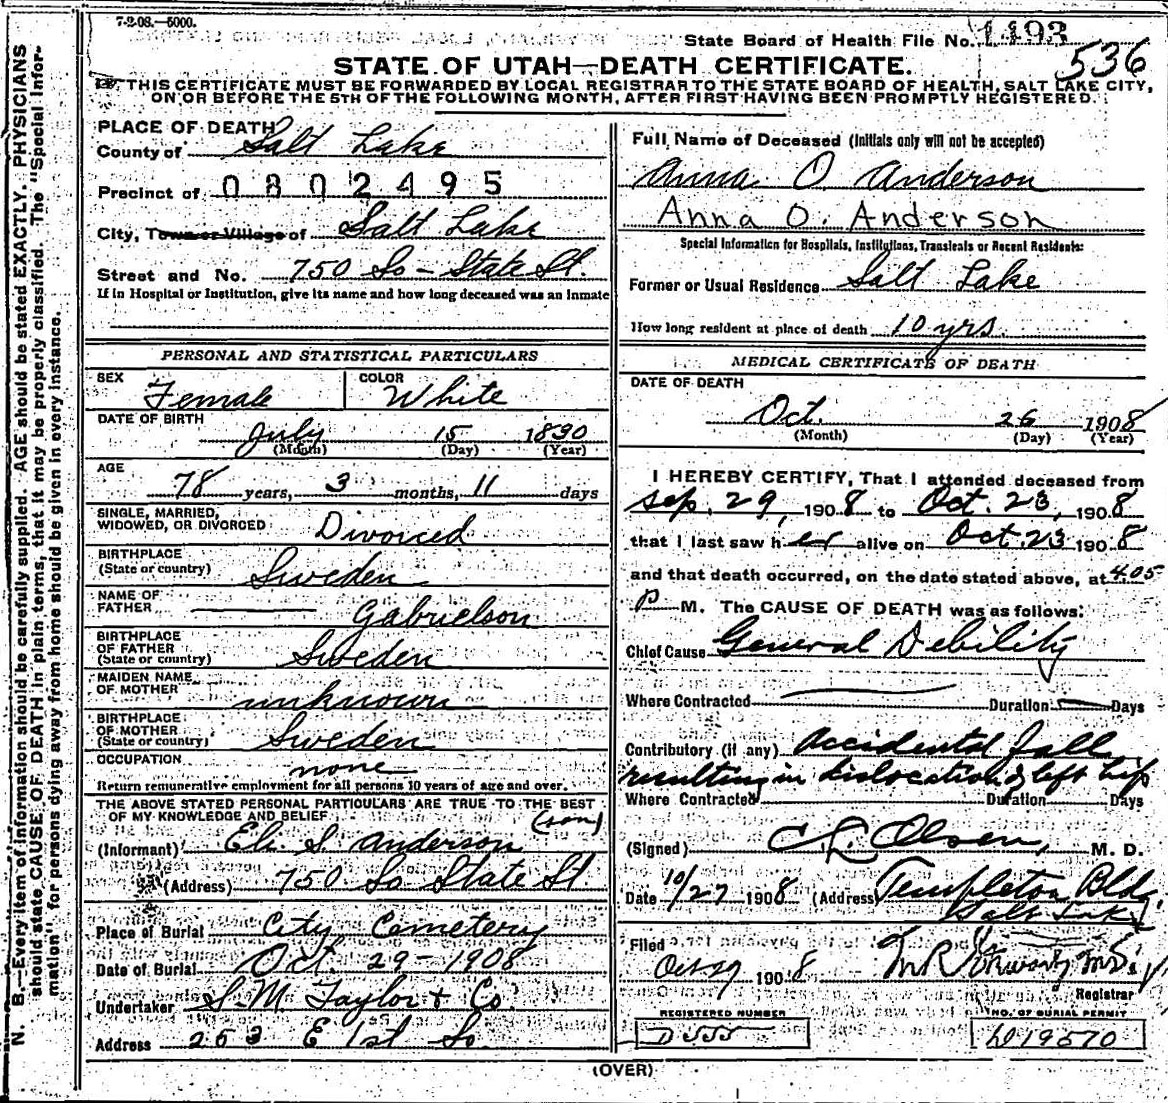 7-2-08.—5000.
State Board of Health File No. 1493
536
STATE OF UTAH—DEATH CERTIFICATE.
THIS CERTIFICATE MUST BE FORWARDED BY LOCAL REGISTRAR TO THE STATE BOARD OF HEALTH, SALT LAKE CITY,
ON OR BEFORE THE 5TH OF THE FOLLOWING MONTH, AFTER FIRST HAVING BEEN PROMPTLY REGISTERED.
N. B.—Every item of information should be carefully supplied. AGE should be stated EXACTLY. PHYSICIANS
should state CAUSE OF DEATH in plain terms, that it may be properly classified. The "Special Infor-
mation" for persons dying away from home should be given in every instance.
PLACE OF DEATH
County of Salt Lake
Precinct of 0802495
City, Town or Village of Salt Lake
Street and No. 750 So - State St.
If in Hospital or Institution, give its name and how long deceased was an inmate
PERSONAL AND STATISTICAL PARTICULARS
SEX Female COLOR White
DATE OF BIRTH July 15 1830
(Month) (Day) (Year)
AGE 78 years, 3 months, 11 days
SINGLE, MARRIED,
WIDOWED, OR DIVORCED Divorced
BIRTHPLACE
(State or country) Sweden
NAME OF
FATHER Gabrielson
BIRTHPLACE
OF FATHER
(State or country) Sweden
MAIDEN NAME
OF MOTHER unknown
BIRTHPLACE
OF MOTHER
(State or country) Sweden
OCCUPATION none
Return remunerative employment for all persons 10 years of age and over.
THE ABOVE STATED PERSONAL PARTICULARS ARE TRUE TO THE BEST
OF MY KNOWLEDGE AND BELIEF (son)
(Informant) Eli S. Anderson
(Address) 750 So State St
Place of Burial City Cemetery
Date of Burial Oct. 29 - 1908
Undertaker S. M. Taylor + Co.
Address 253 E 1st So.
Full Name of Deceased (Initials only will not be accepted)
Anna O Anderson
Anna O. Anderson
Special Information for Hospitals, Institutions, Transients or Recent Residents:
Former or Usual Residence Salt Lake
How long resident at place of death 10 yrs.
MEDICAL CERTIFICATE OF DEATH
DATE OF DEATH
Oct. 26 1908
(Month) (Day) (Year)
I HEREBY CERTIFY, That I attended deceased from
Sep. 29, 1908 to Oct. 23, 1908
that I last saw her alive on Oct. 23 1908
and that death occurred, on the date stated above, at 4.05
P M. The CAUSE OF DEATH was as follows:
Chief Cause General Debility
Where Contracted Duration Days
Contributory (if any) Accidental fall
resulting in dislocation of left hip
Where Contracted Duration Days
(Signed) C L Olsen, M. D.
Date 10/27 1908 (Address) Templeton Bldg.
Salt Lake
Filed
Oct 29 1908
Registrar
REGISTERED NUMBER
D555
NO. OF BURIAL PERMIT
D19570
(OVER)